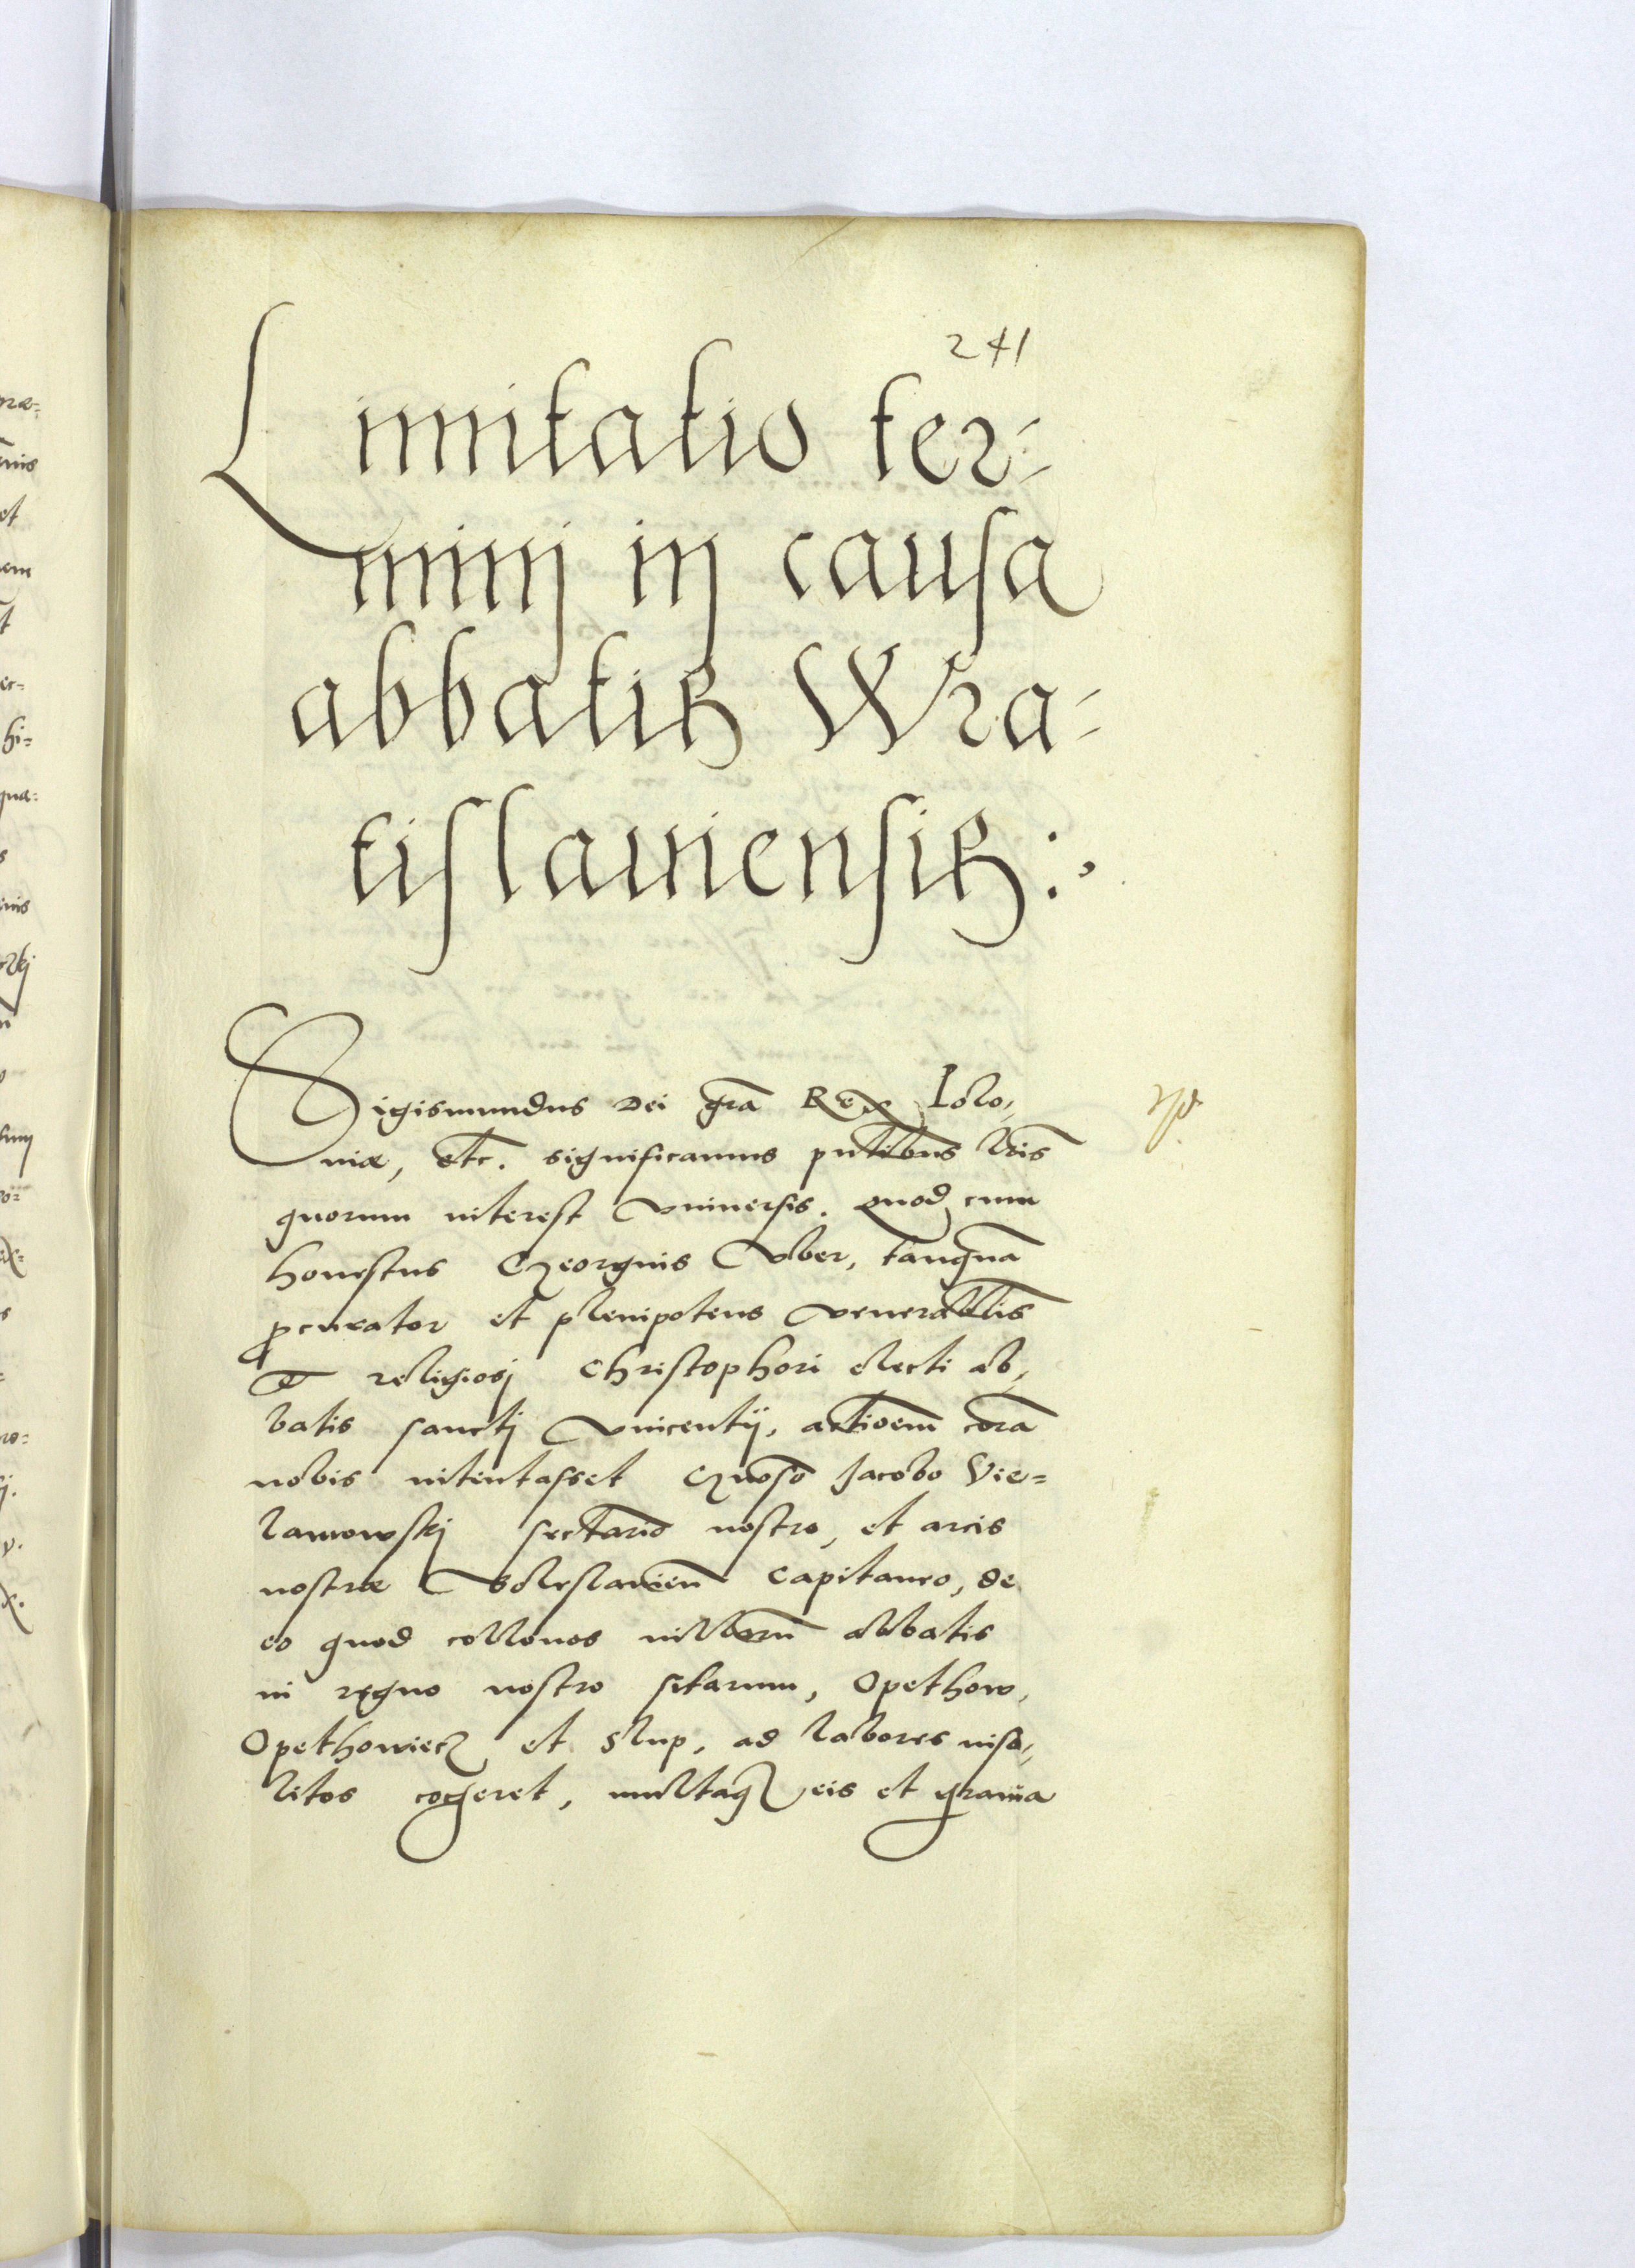 241
Limitatio ter-
minj in causa
abbatis Wra-
tislauiensis :
Sigismundus Dei gra̅ Rex Polo,
niæ, etc. significamus pn̅tibus lr̅is
quorum interest vniuersis. Quod cum
honestus Georgius Vber, tanqua̅
ꝓcurator et plenipotens venerablis̅
et religiosj Christophori electi ab,
batis sanctj Vincentij, actioem̅ cora̅
nobis intentasset Gn̅oso Jacobo Vie=
lamowskj secr̅tario nostro, et arcis
nostræ Boleslauien̅ Capitaneo, de
eo quod collonos villaru̅ abbatis
in regno nostro sitarum, Opethow,
Opethowiecz et Slup, ad labores inso,
litos cogeret, multaqꝫ eis et grauia